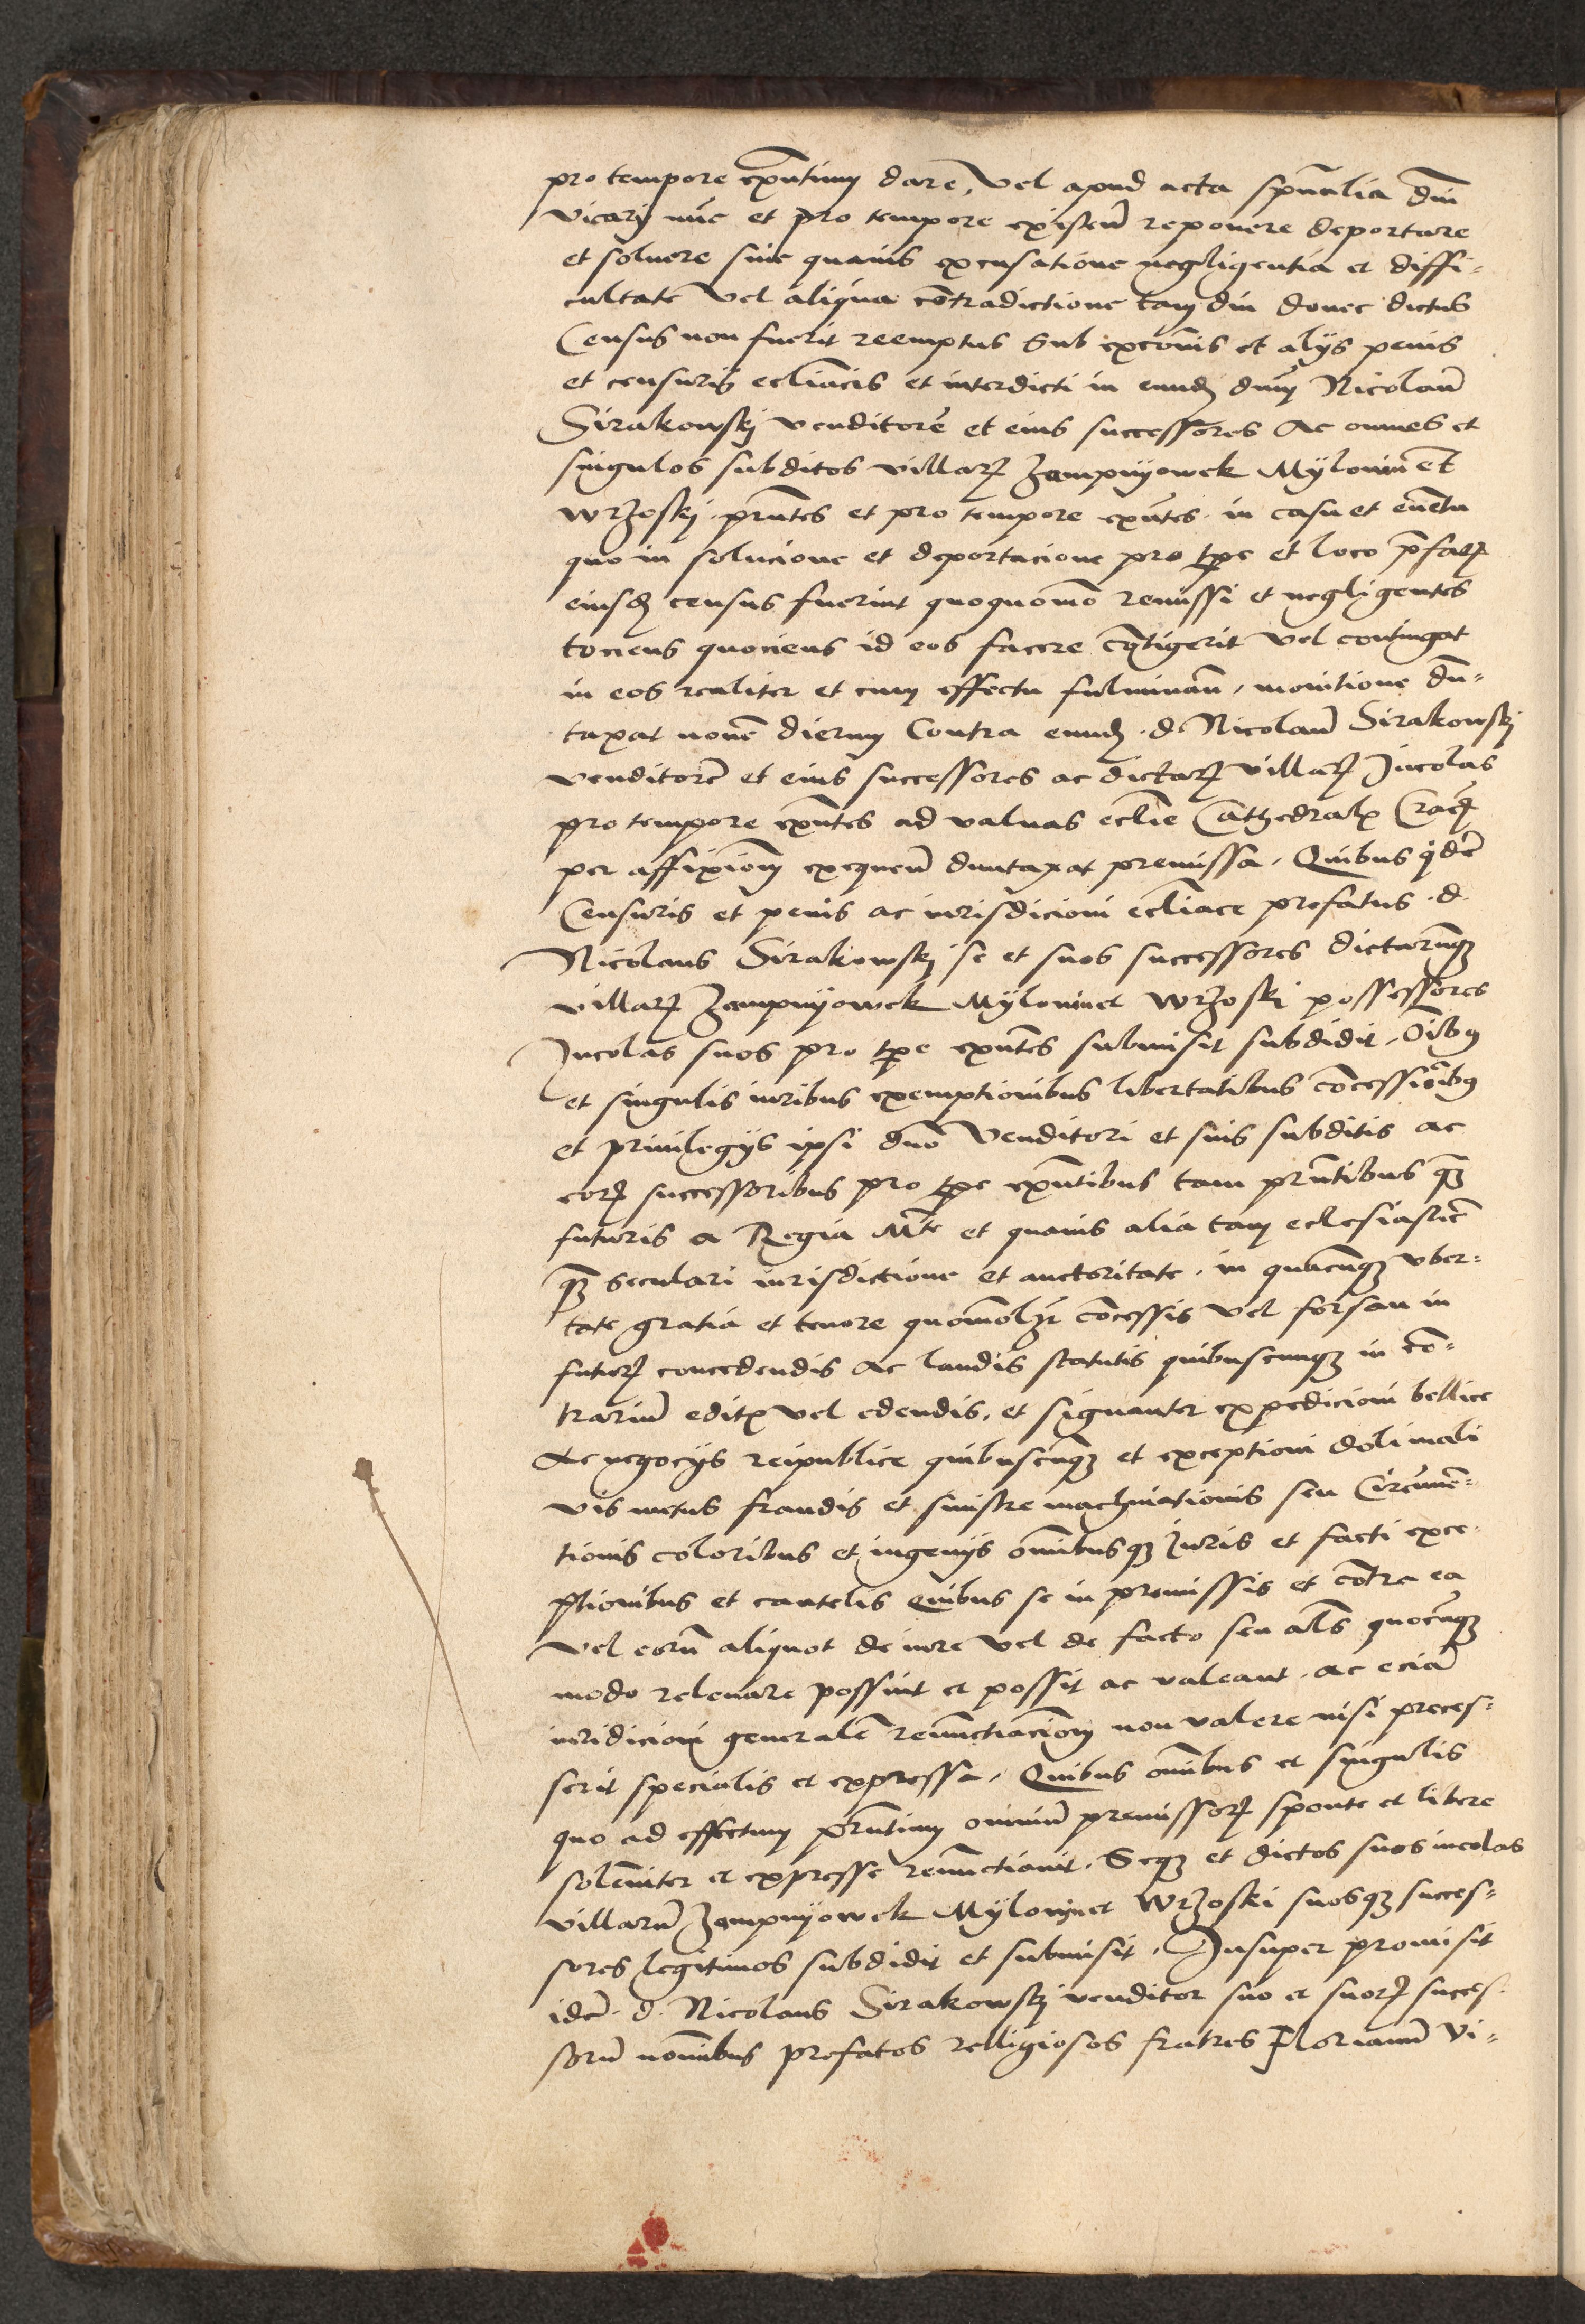 pro tempore exñtium dare, vel apud acta spũalia dñi
vicarij nũc et pro tempore existeñ reponere deportare
et soluere sine quauis excusatione negligentia et diffi-
cultate vel aliqua cõtradictione tam diu donec dictus
Census non fuerit reemptus Sub excõnis et alijs penis
et censuris ecliacis et interdicti in eund dnũ Nicolaũ
Sirakowskj venditorẽ et eius successores Ac omnes et
singulos subditos villarꝝ Zempnyowek Mylonin et
wrzoskj prñtes et pro tempore exñtes in casu et euẽtu
quo in solucione et deportacione pro tp̃e et loco p̃fatꝝ
eiusd census fuerint quoquomõ remissi et negligentes
tociens quociens id eos facere cõtigerit vel contingat
in eos realiter et cum effectu fulminañ, monitione du-
taxat nouẽ dierum Contra eund d Nicolaũ Sirakowskj
venditorẽ et eius successores ac dictarꝝ villarꝝ Incolas
pro tempore exñtes ad valuas eclie Cathedralis Cracꝝ
per affixionẽ exequeñ duntaxat premissa, Quibus qdẽ
Censuris et penis ac iurisdicioni ecliace prefatus d
Nicolaus Sirakowskj se et suos successores dictarũqꝫ
villarꝝ Zempnyowek Mylonin et wrzoski possessores
Incolas suos pro tp̃e exñtes submisit subdidit, Oibꝯ
et singulis iuribus exemptionibus libertatibus cõcessiõibꝯ
et priuilegijs ipsi dño Venditori et suis subditis ac
eorꝝ successoribus pro tp̃e exñtibus tam prñtibus qꝫ
futuris a Regia Mte et quauis alia tam eclesiasticẽ
qꝫ seculari iurisdictione et auctoritate, in quacũqꝫ vber-
tate gratia et tenore quomõlꝫ cõcessis vel forsan in
futurꝝ concedendis Ac laudis statutis quibuscunqꝫ in cõ-
trariũ editis vel edendis, et signanter expedicioni bellice
Ac negocijs reipublice quibuscũqꝫ et exceptioni doli mali
vis metus fraudis et sinistre machinationis seu Circũuẽ-
tionis coloribus et ingenijs omibusqꝫ Iuris et facti exce-
ptionibus et cautelis Quibus se in premissis et cõtra ea
vel eorũ aliquot de iure vel de facto seu als quocũqꝫ
modo releuare possint et possit ac valeant, ac eciã
iuridicioni generalẽ renũctiacionẽ non valere nisi preces-
serit specialis et expressa, Quibus omibus et singulis
quo ad effectum prñtium omniũ premissorꝝ sponte et libere
solẽniter et expresse renũctiauit, Seqꝫ et dictos suos incolas
villarũ Zempnyowek Mylonin et Wrzoski suosqꝫ succes-
sores legitimos subdidit et submisit, Insuper promisit
idẽ d Nicolaus Sirakowskj venditor suo et suorꝝ succes-
sorũ nomibus prefatos relligiosos fratres Florianũ Vi-